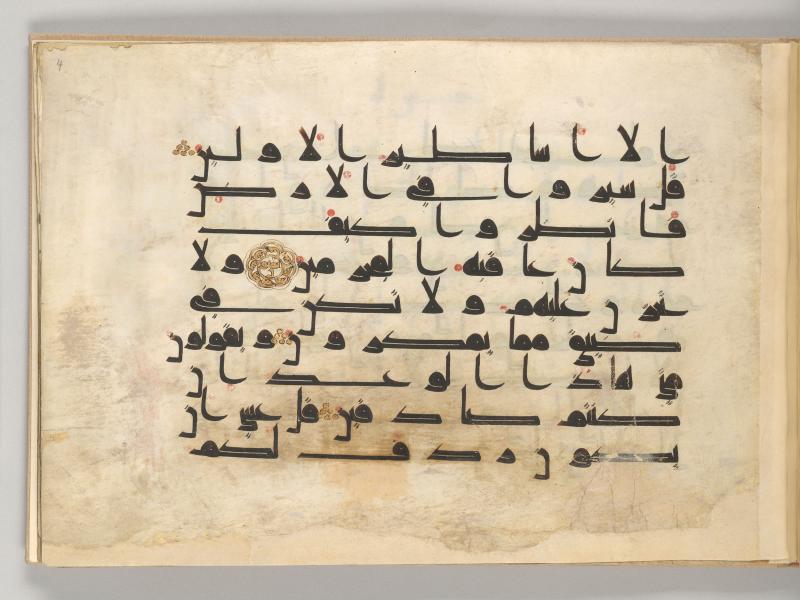 4
الا اساطير الاولين
قل سيروا في الارض
فانظروا كيف
كان عاقبة المجرمين ولا
تحزن عليهم ولا تكن في
ضيق مما يمكرون ويقولون
متى هذا الوعد ان
كنتم صادقين قل عسى ان
يكون ردف لكم